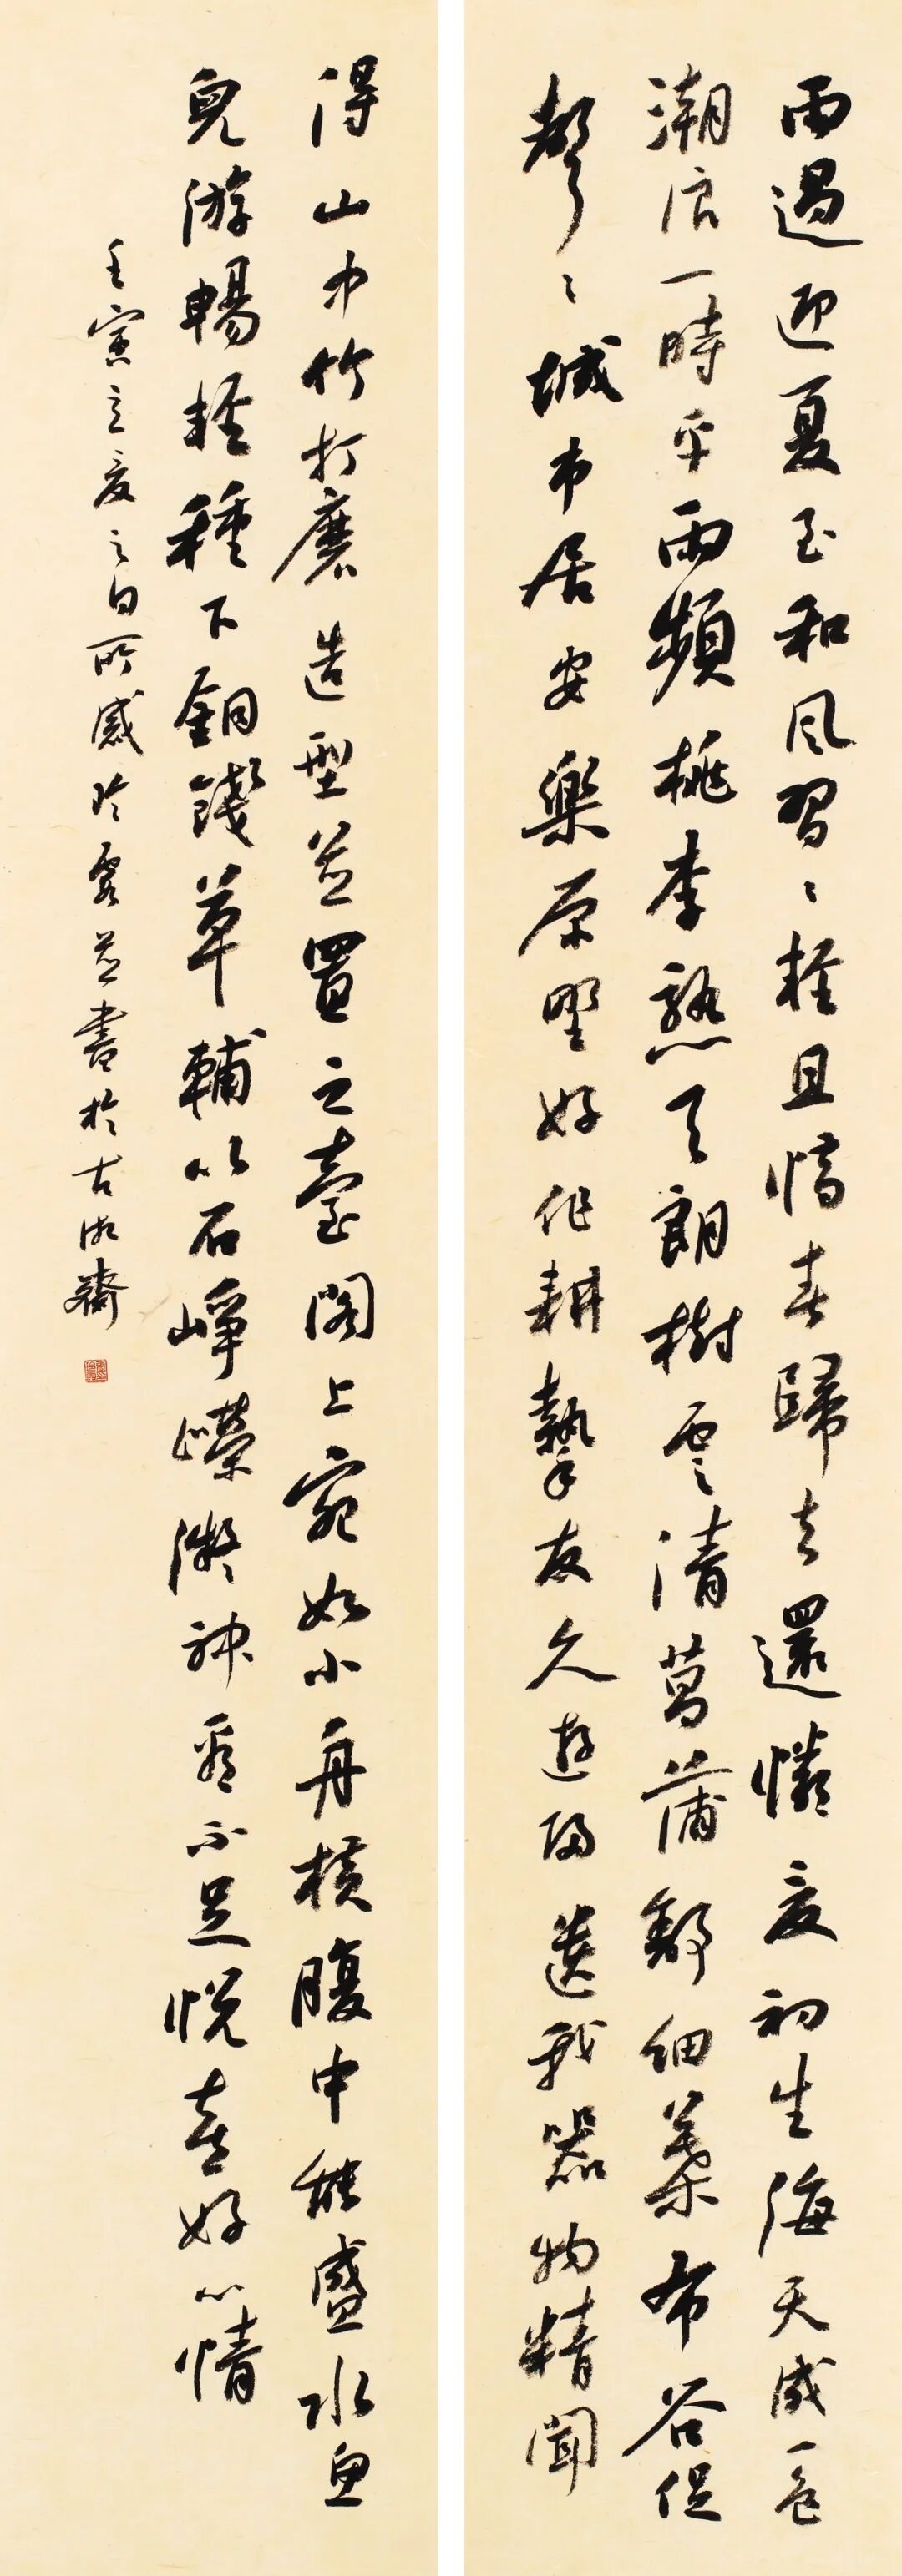 雨過迎夏至和風習習輕且惜春歸去還憐夏初生海天成一色
潮浪一時平雨頻桃李熟天朗樹雲清菖蒲舒細葉布谷促
聲聲城市居安樂原野好作耕摯友久遊歸送我器物精聞
得山中竹打磨造型並置之臺閣上宛如小舟橫腹中能盛水魚
兒游暢輕種下銅錢草輔以石崢嶸凝神看不足悅喜好心情
壬寅立夏之日所感吟並書於古齋